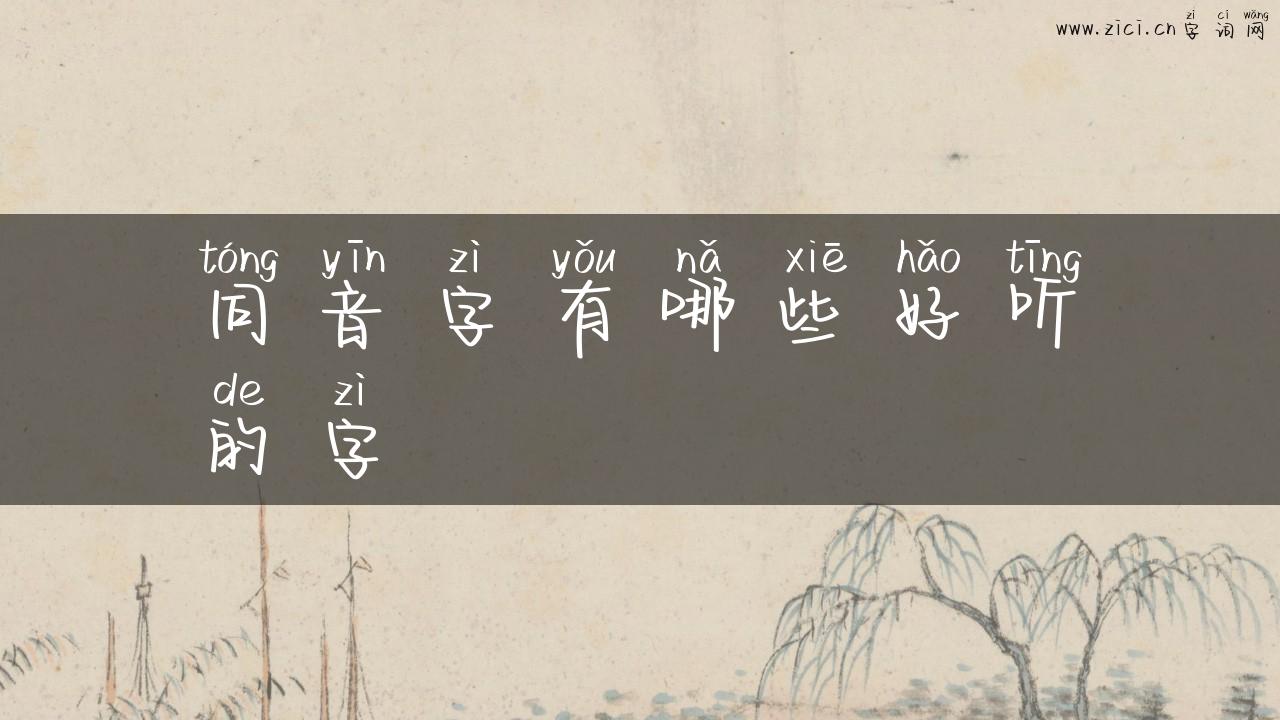 www.zici.cn 字词网
zì cí wǎng
tóng yīn zì yǒu nǎ xiē hǎo tīng
同音字有哪些好听
de zì
的字